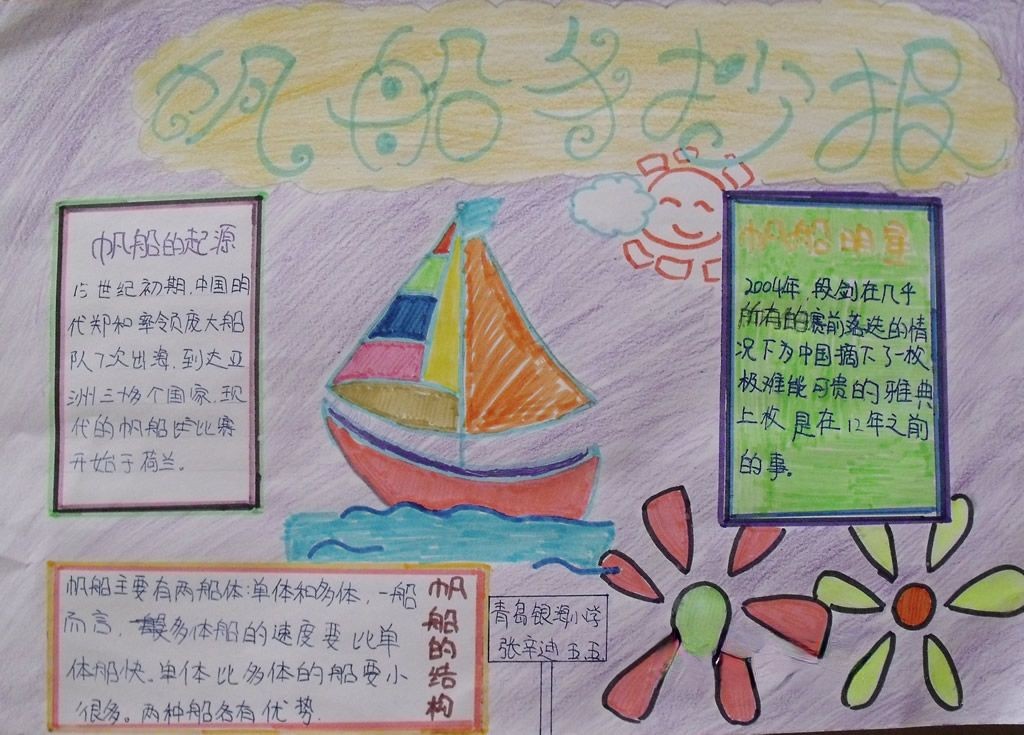 帆船手抄报
帆船的起源
15世纪初期,中国明
代郑和率领庞大船
队7次出海,到达亚
洲三十多个国家,现
代的帆船比赛
开始于荷兰。
帆船明星
2004年,段剑在几乎
所有的赛前落选的情
况下为中国摘下了一枚
极难能可贵的雅典
上枚 是在12年之前
的事。
帆船主要有两船体:单体和多体,一船
而言,多体船的速度要比单
体船快。单体比多体的船要小
很多。两种船各有优势.
帆船的结构
青岛银海小学
张辛迪 五五